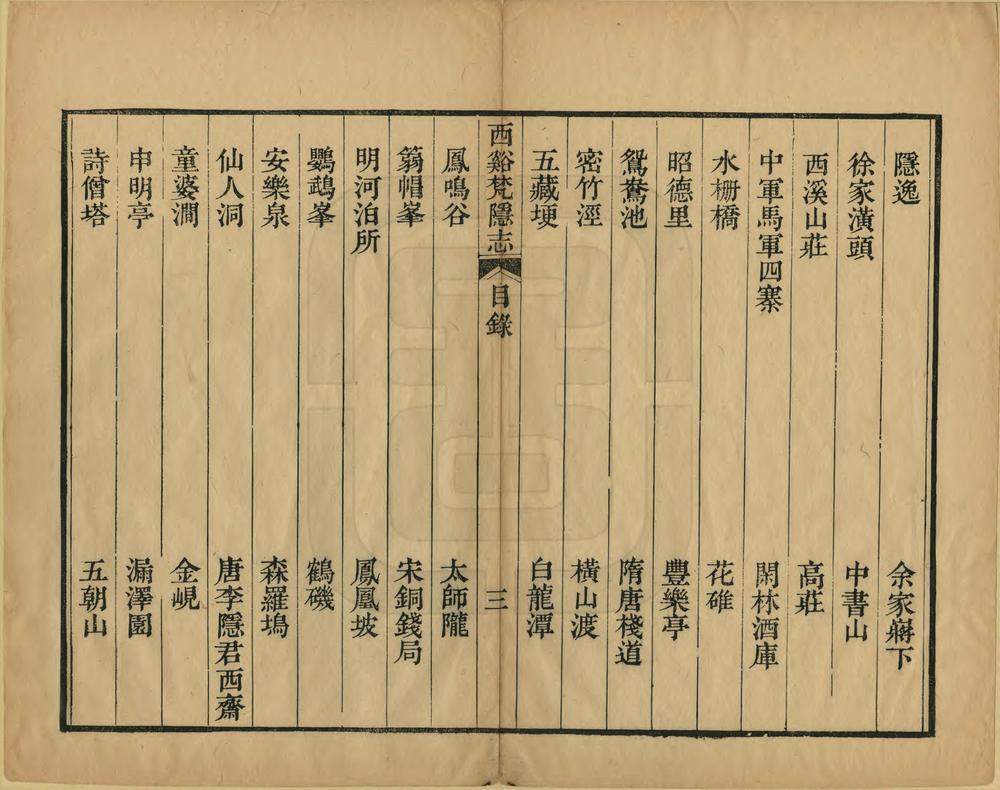 隱逸　余家蔣下
徐家潢頭　中書山
西溪山莊　高莊
中軍馬軍四寨　閑林酒庫
水栅橋　花碓
昭德里　豐樂亭
鴛鴦池　隋唐棧道
密竹涇　橫山渡
五藏埂　白龍潭
西谿梵隱志　目錄　三
鳳鳴谷　太師隴
篛帽峯　宋銅錢局
明河泊所　鳳凰坡
鸚鵡峯　鶴磯
安樂泉　森羅塢
仙人洞　唐李隱君西齋
童婆澗　金峴
申明亭　漏澤園
詩僧塔　五朝山